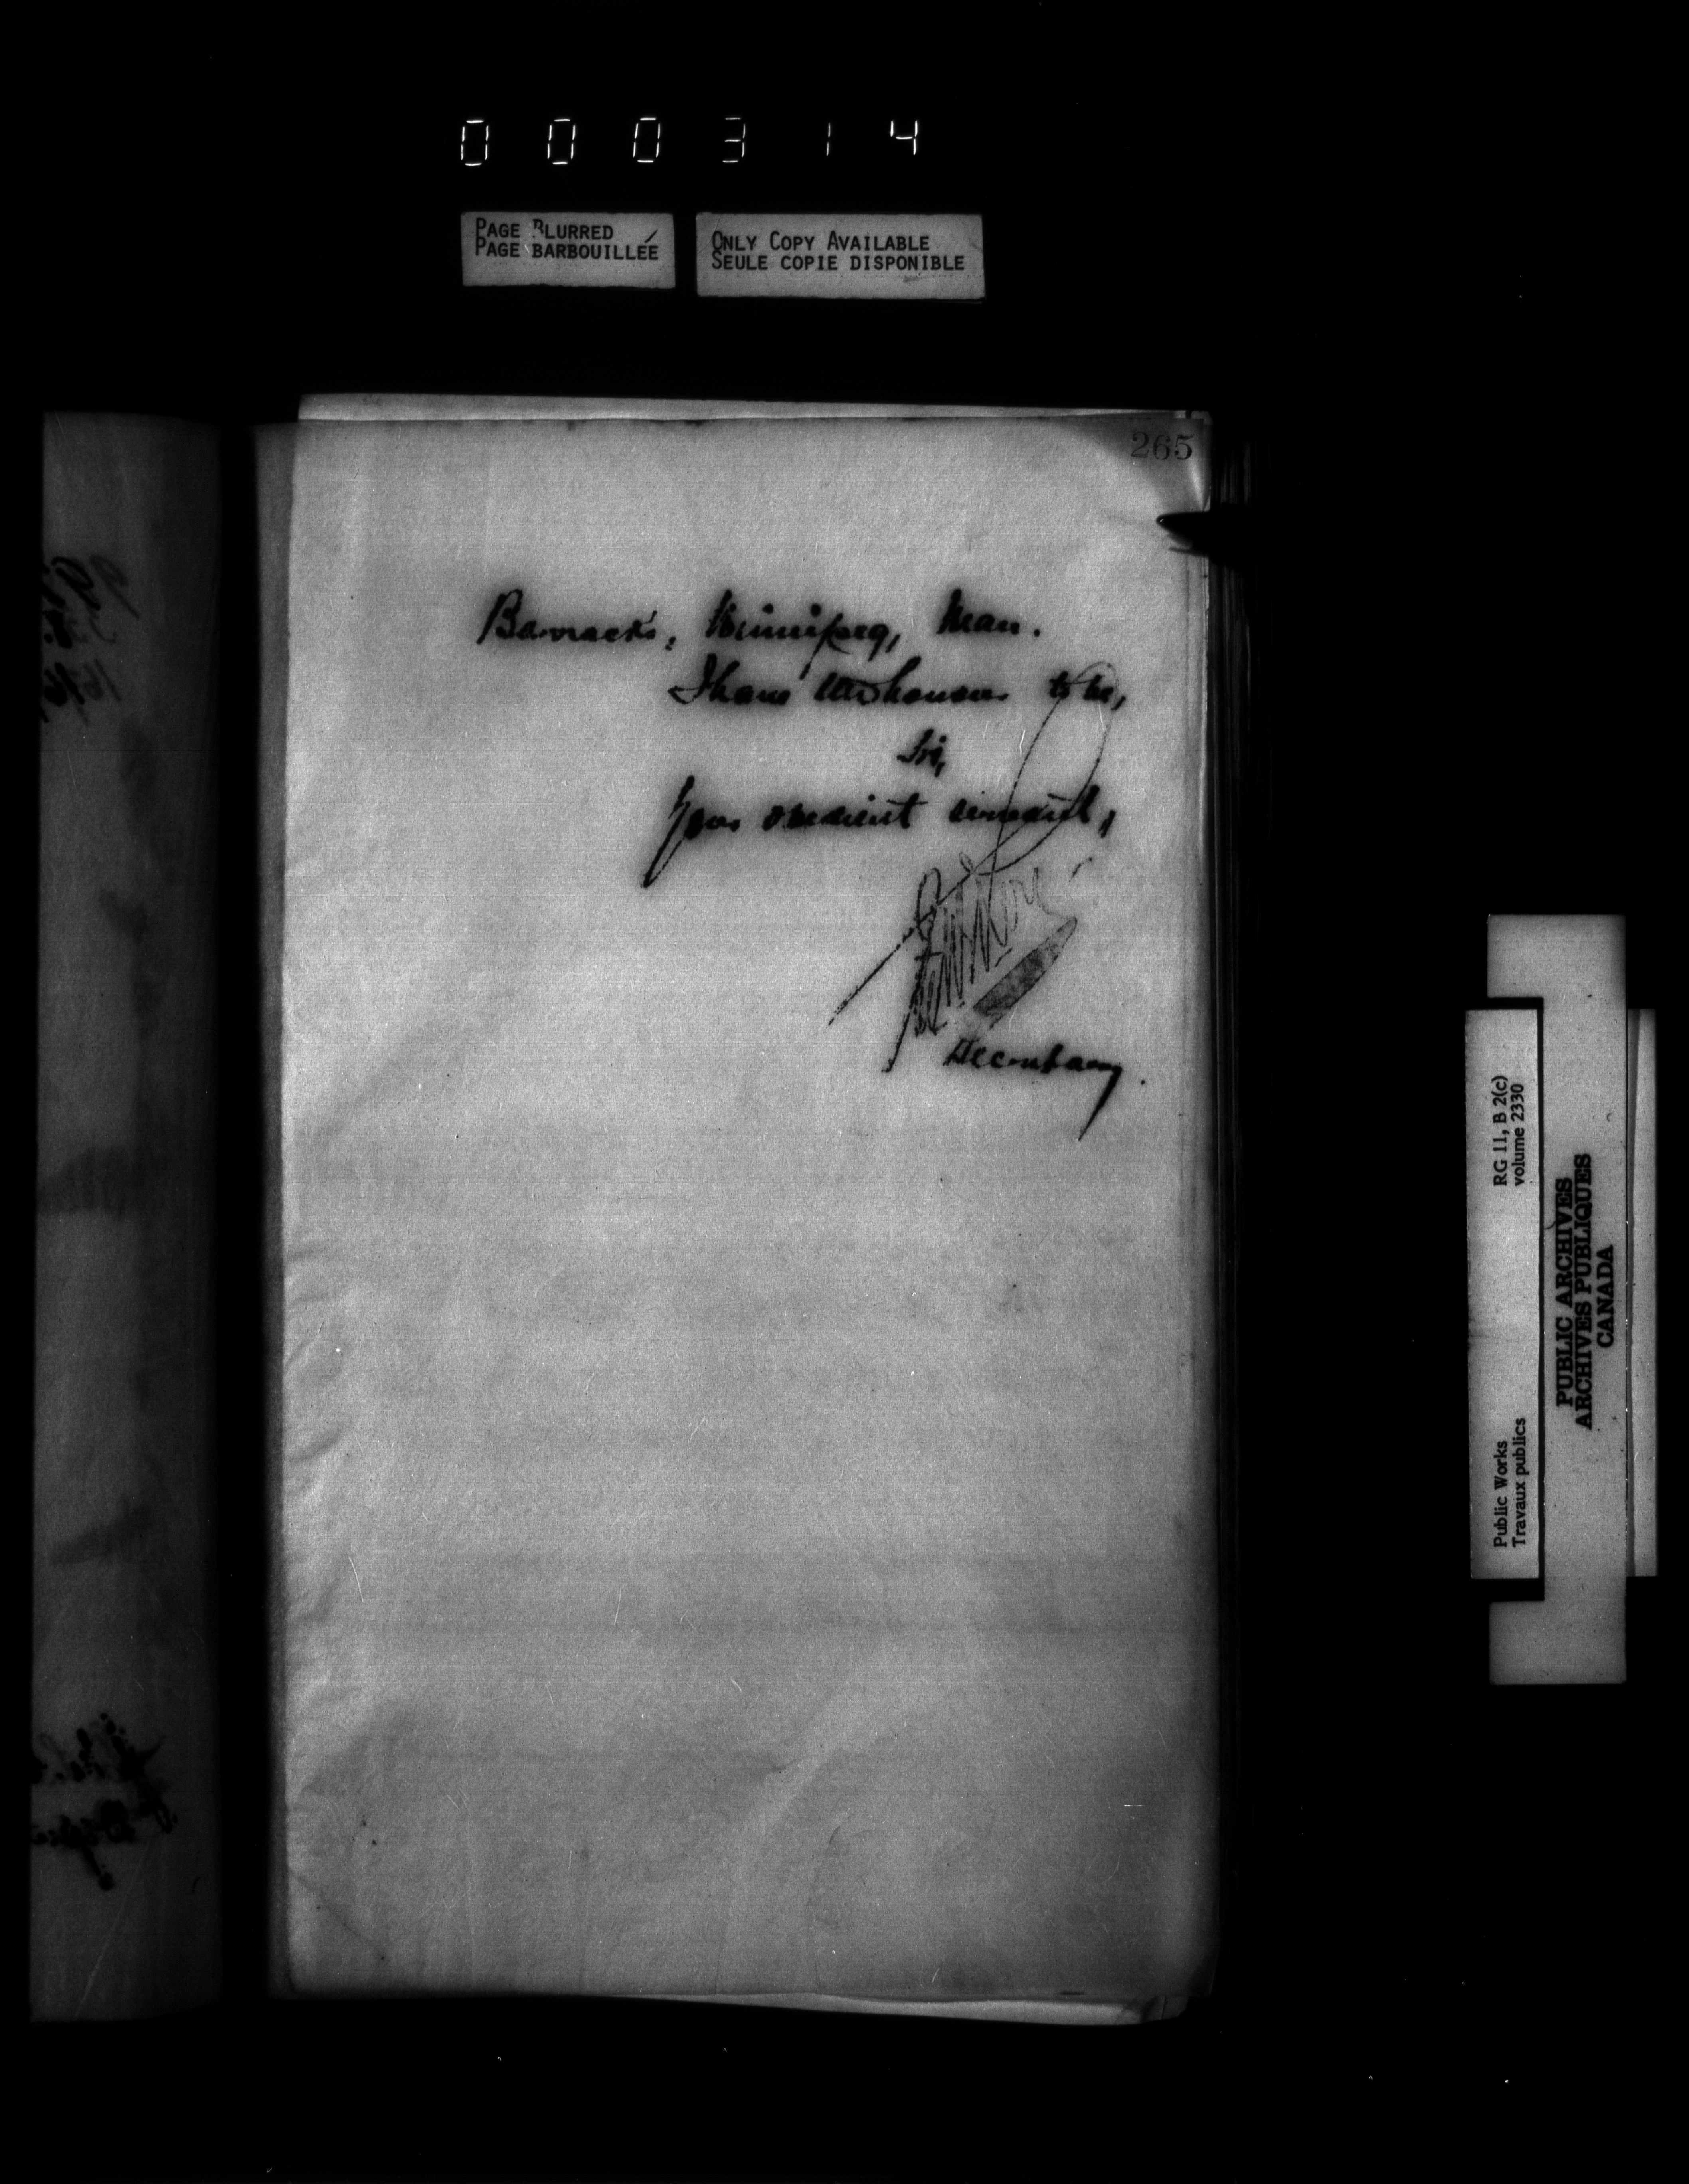 000314
PAGE BLURRED
PAGE BARBOUILLÉE
ONLY COPY AVAILABLE
SEULE COPIE DISPONIBLE
265
Barracks, Winnipeg, Man.
I have the honour to be,
Sir,
Your obedient servant,
Secretary.
RG 11, B 2(c)
volume 2330
Public Works
Travaux publics
PUBLIC ARCHIVES
ARCHIVES PUBLIQUES
CANADA